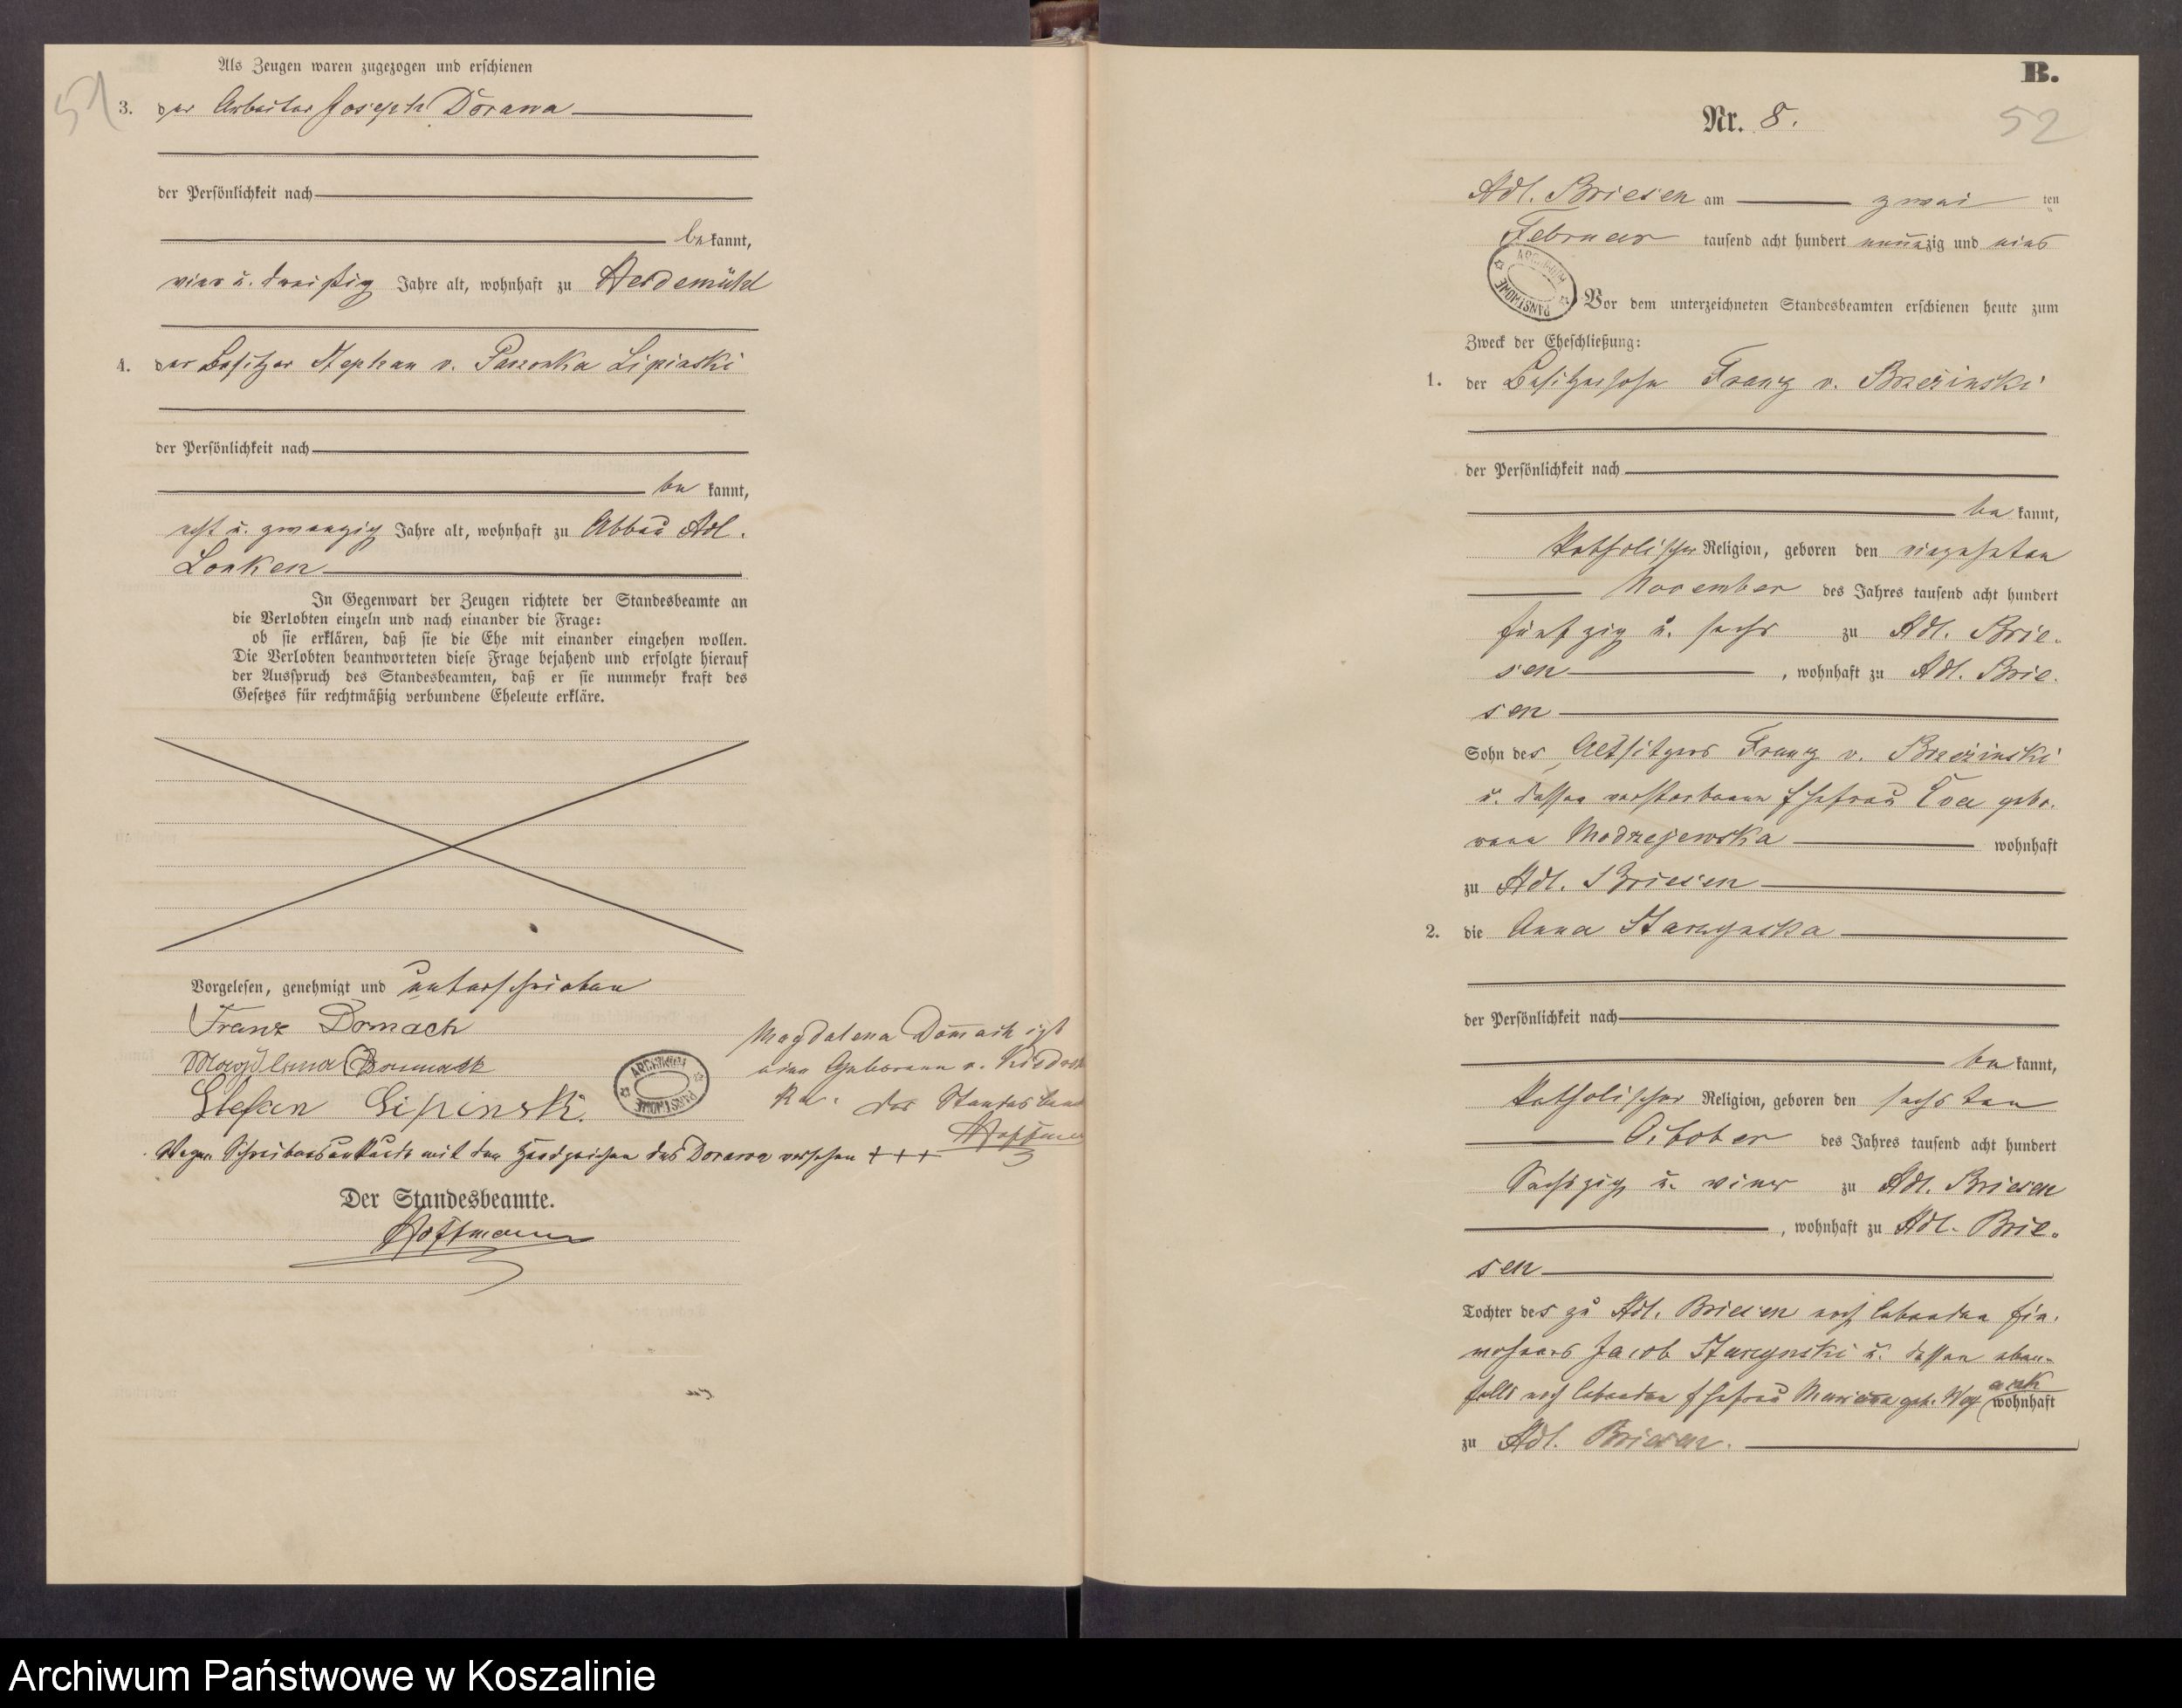 51
Als Zeugen waren zugezogen und erschienen
3. der Arbeiter Joseph Dorawa
der Persönlichkeit nach
bekannt,
vier u. dreißig Jahre alt, wohnhaft zu Heidemühl
4. der Besitzer Stephan v. Paszonka Lipinski
der Persönlichkeit nach
be kannt,
acht u. zwanzig Jahre alt, wohnhaft zu Abbau Adl.
Lonken
In Gegenwart der Zeugen richtete der Standesbeamte an
die Verlobten einzeln und nach einander die Frage:
ob sie erklären, daß sie die Ehe mit einander eingehen wollen.
Die Verlobten beantworteten diese Frage bejahend und erfolgte hierauf
der Ausspruch des Standesbeamten, daß er sie nunmehr kraft des
Gesetzes für rechtmäßig verbundene Eheleute erkläre.
Vorgelesen, genehmigt und unterschrieben
Franz Domach
Domach
Stefan Lipinski.
Magdalena Domach ist
eine Geborene v.
ka. Der Standesbeamt
Hoffmann
ARCHIWUM PAŃSTWOWE
Wegen Schreibensunkunde mit den Handzeichen des Dorawa versehen + + +
Der Standesbeamte.
Hoffmann
B.
52
Nr. 8.
Adl. Briesen am zwei ten
Februar tausend acht hundert neunzig und eins
ARCHIWUM PAŃSTWOWE
Vor dem unterzeichneten Standesbeamten erschienen heute zum
Zweck der Eheschließung:
1. der Besitzersohn Franz v. Brzezinski
der Persönlichkeit nach
be kannt,
katholischer Religion, geboren den vierzehnten
November des Jahres tausend acht hundert
fünfzig u. sechs zu Adl. Brie-
sen, wohnhaft zu Adl. Brie-
sen
Sohn des Altsitzers Franz v. Brzezinski
u. dessen verstorbene Ehefrau Eva gebo-
rene Modrzejewska wohnhaft
zu Adl. Briesen
2. die Anna Starzynska
der Persönlichkeit nach
be kannt,
katholischer Religion, geboren den sechsten
October des Jahres tausend acht hundert
Sechszig u. vier zu Adl. Briesen
, wohnhaft zu Adl. Brie-
sen
Tochter des zu Adl. Briesen noch lebenden Ein-
wohners Jacob Starzynski u. dessen eben-
falls noch lebenden Ehefrau Marianna geb. wohnhaft
zu Adl. Briesen.
Archiwum Państwowe w Koszalinie